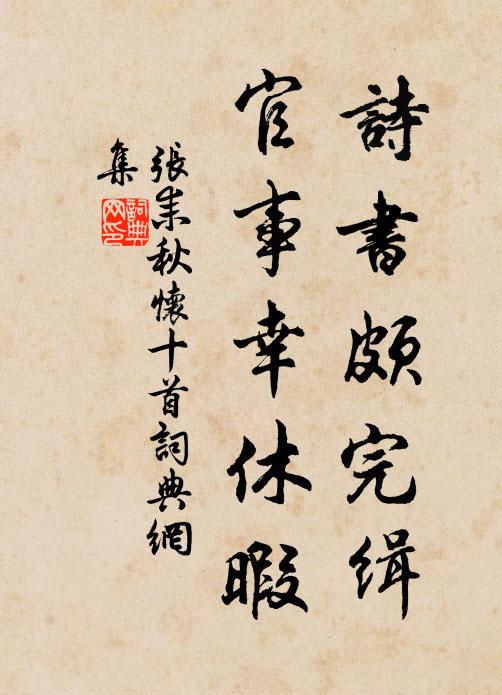 詩書頗完緝
官事幸休暇
張耒秋懷十首詞典網
集
詞典
网印